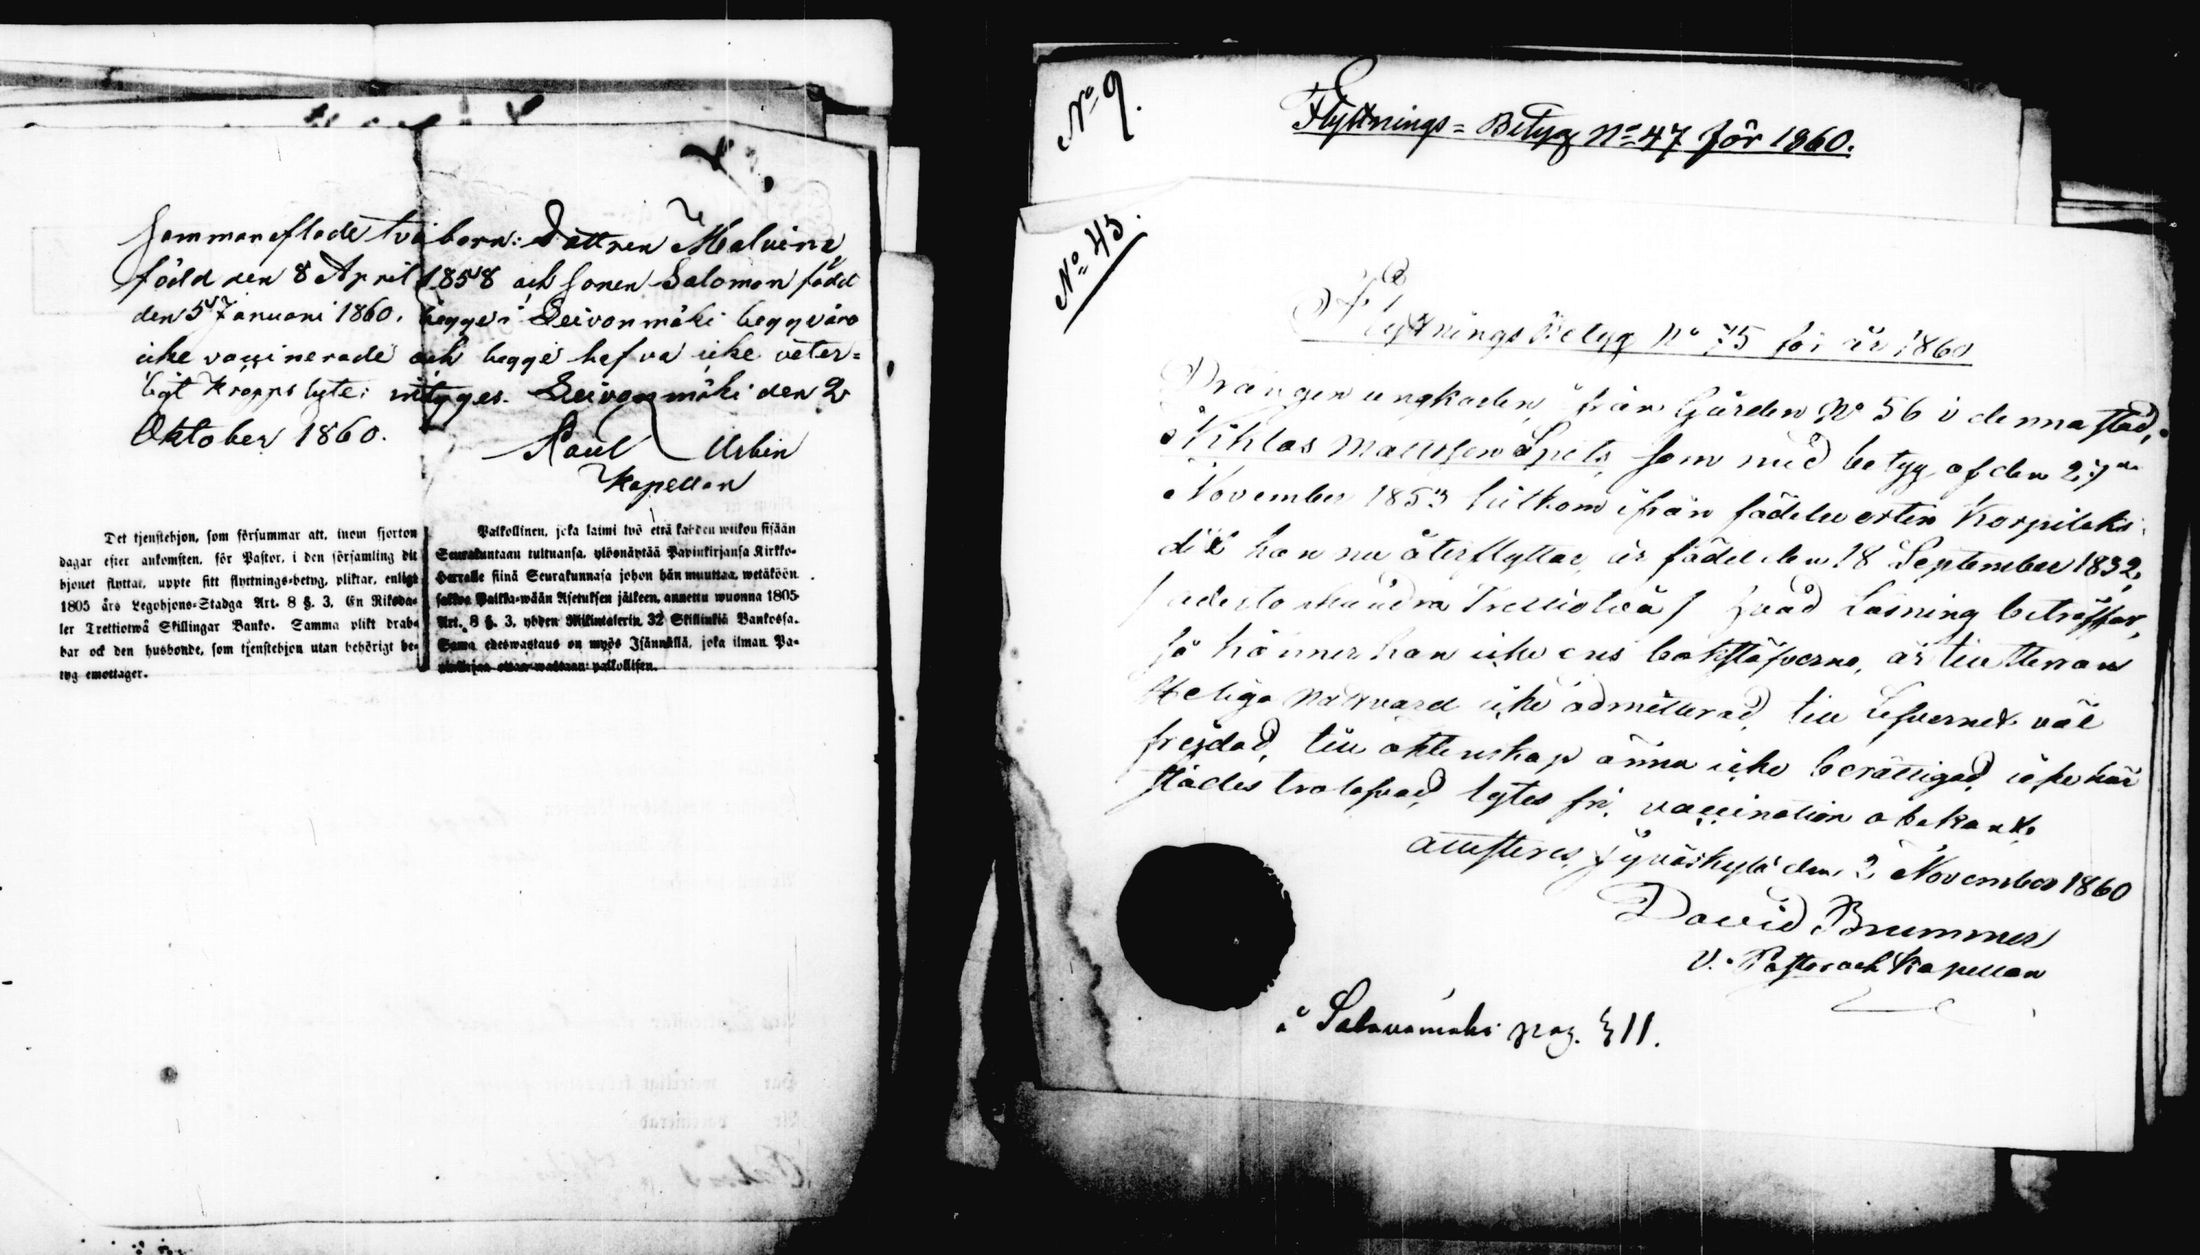 Sammanaflade två barn: Dottren Malvina
född den 8 April 1858 och Sonen Salomon född
den 5 Januari 1860. begge i Leivonmäki begge äro
icke vaccinerade och begge hafva icke veter-
ligt kropps lyte; intyges. Leivonmäki den 2
Oktober 1860.
Paul Urbin
Kapellan
Det tjenstehjon, som försummar att, inom fjorton
dagar efter ankomsten, för Pastor, i den församling dit
hjonet flyttat, uppte sitt flyttnings-betyg, pliktar, enligt
1805 års Legohjons-Stadga Art. 8 §. 3, En Riksda-
ler Trettiotwå Skillingar Banko. Samma plikt drab-
bar ock den husbonde, som tjenstehjon utan behörigt be-
tyg emottager.
Palkollinen, joka laimi lyö että kahden wiikon sisään
Seurakuntaan tultuansa, ylösnäytää Papinkirjansa Kirkko-
Herralle siinä Seurakunnasa johon hän muuttaa, wetäköön
sakkoa Palkka-wään Asetuksen jälkeen, annettu wuonna 1805
Art. 8 §. 3, yhden Riksintalerin 32 Skillinkiä Bankossa.
Sama edeswastaus on myös Isännällä, joka ilman Pa-
pinkirjaa ottaa wastaan palkollisen.
No 9.
Flyttnings-Betyg No 47 för 1860.
No 43.
Flyttnings Betyg No 75 för år 1860
Drängen ungkarlen, från Gården No 56 i denna stad,
Niklas Mattsson Spets, som med betyg af den 27de
November 1853 hitkom ifrån födelseorten Korpilaks,
dit han nu återflyttar, är född den 18 September 1832,
/adertonhundra Trettiotvå/ hvad Läsning beträffar,
så känner han icke ens bokstäfverne, är till Herrans
Heliga Nattvard icke admitterad, till Lefvernet väl
frejdad, till äktenskap ännu icke berättigad, icke här
städes trolofvad, lytes fri, vaccination obekant,
attesteras, Jyväskylä den 2 November 1860
David Brummer
V. Pastor och Kapellan
å Salavamäki pag. 311.